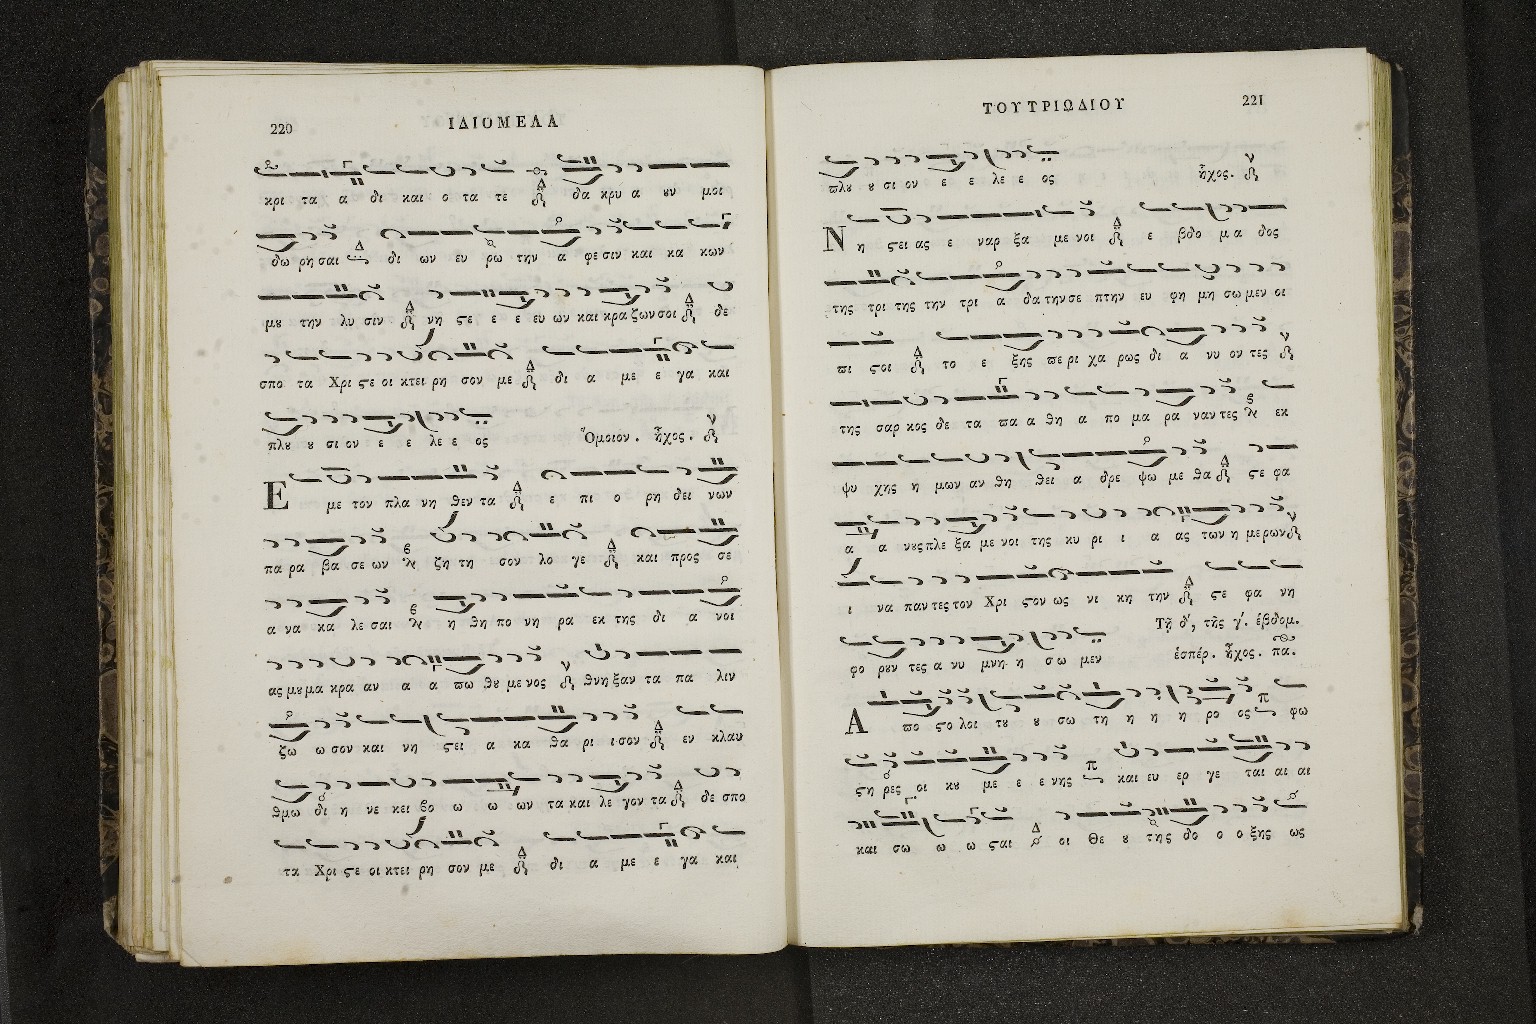 220
ΙΔΙΟΜΕΛΑ
κρι τα α δι και ο τα τε δα κρυ α ȣν μοι
δω ρη σαι δι ων ευ ρω την α φε σιν και κα κων
μȣ την λυ σιν νη ϛε ε ε ευ ων και κρα ζων σοι δε
σπο τα Χρι ϛε οι κτει ρη σον με δι α με ε γα και
πλȣ ȣ σι ον ε ε λε ε ος Ὅμοιον. ἦχος.
Ε με τον πλα νη θεν τα ε πι ο ρη δει νων
πα ρα βα σε ων ζη τη σον λο γε και προς σε
α να κα λε σαι η θη πο νη ρα εκ της δι α νοι
ας μȣ μα κρα αν α α πω θȣ με νος θνη ξαν τα πα λιν
ζω ω σον και νη ϛει α κα θα ρι ι σον εν κλαυ
θμω δι η νε κει βο ω ω ων τα και λε γον τα δε σπο
τα Χρι ϛε οι κτει ρη σον με δι α με ε γα και
ΤΟΥ ΤΡΙΩΔΙΟΥ
221
πλȣ ȣ σι ον ε ε λε ε ος ἦχος.
Ν η ϛει ας ε ναρ ξα με νοι ε βδο μα δος
της τρι της την τρι α δα την σε πτην ευ φη μη σω μεν οι
πι ϛοι το ε ξης πε ρι χα ρως δι α νυ ον τες
της σαρ κος δε τα πα α θη α πο μα ρα ναν τες εκ
ψυ χης η μων αν θη θει α δρε ψω με θα ϛε φα
α α νȣς πλε ξα με νοι της κυ ρι ι α ας των η με ρων
ι να παν τες τον Χρι ϛον ως νι κη την ϛε φα νη
Τῇ δ', τῆς γ'. ἑβδομ.
φο ρȣν τες α νυ μνη η σω μεν ἑσπέρ. ἦχος. πα.
Α πο ϛο λοι τȣ ȣ σω τη η η η ρο ος φω
ϛη ρες οι κȣ με ε ε νης και ευ ερ γε ται αι αι
και σω ω ω ϛαι οι Θε ȣ της δο ο ο ξης ως